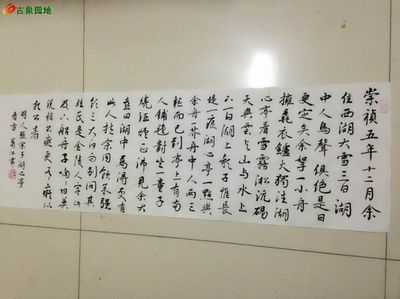 古泉园地
崇禎五年十二月余
住西湖大雪三日湖
中人鳥聲俱絶是日
更定矣余拏一小舟
擁毳衣鑪火獨往湖
心亭看雪霧淞沆碭
天與雲與山與水上
下一白湖上影子惟長
堤一痕湖心亭一點與
余舟一芥舟中人兩三
粒而已到亭上有兩
人鋪氈對坐一童子
燒酒爐正沸見余大
喜曰湖中焉得更有
此人拉余同飲余强
飲三大白而别問其
姓氏是金陵人客此
及下船舟子喃喃曰莫
説相公癡更有癡似
相公者
明人張宗子湖心亭
看雪